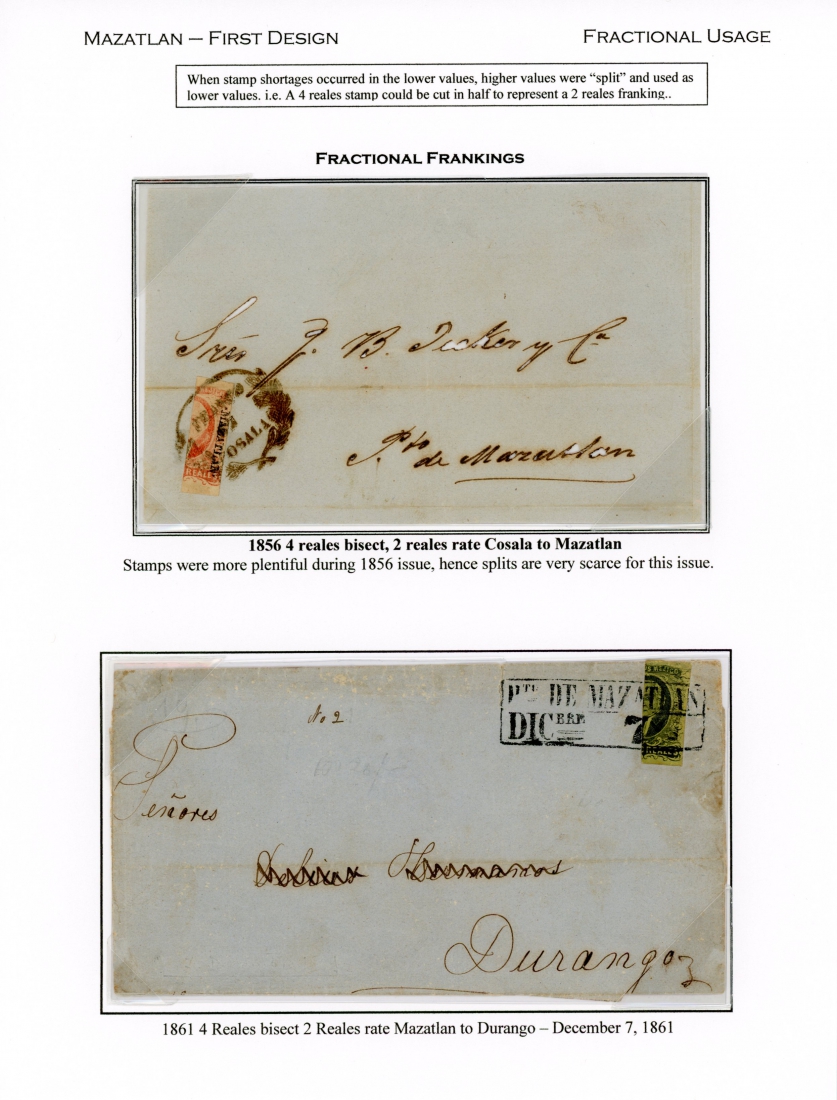 MAZATLAN – FIRST DESIGN
FRACTIONAL USAGE
When stamp shortages occurred in the lower values, higher values were “split” and used as
lower values. i.e. A 4 reales stamp could be cut in half to represent a 2 reales franking..
FRACTIONAL FRANKINGS
Sres J. B. Tecker y Ca
MAZATLAN
OSALA
REALES
Pto
de Mazatlan
1856 4 reales bisect, 2 reales rate Cosala to Mazatlan
Stamps were more plentiful during 1856 issue, hence splits are very scarce for this issue.
PTO DE MAZATLAN
DICBRE 7
No 2
Señores
Durango
1861 4 Reales bisect 2 Reales rate Mazatlan to Durango – December 7, 1861